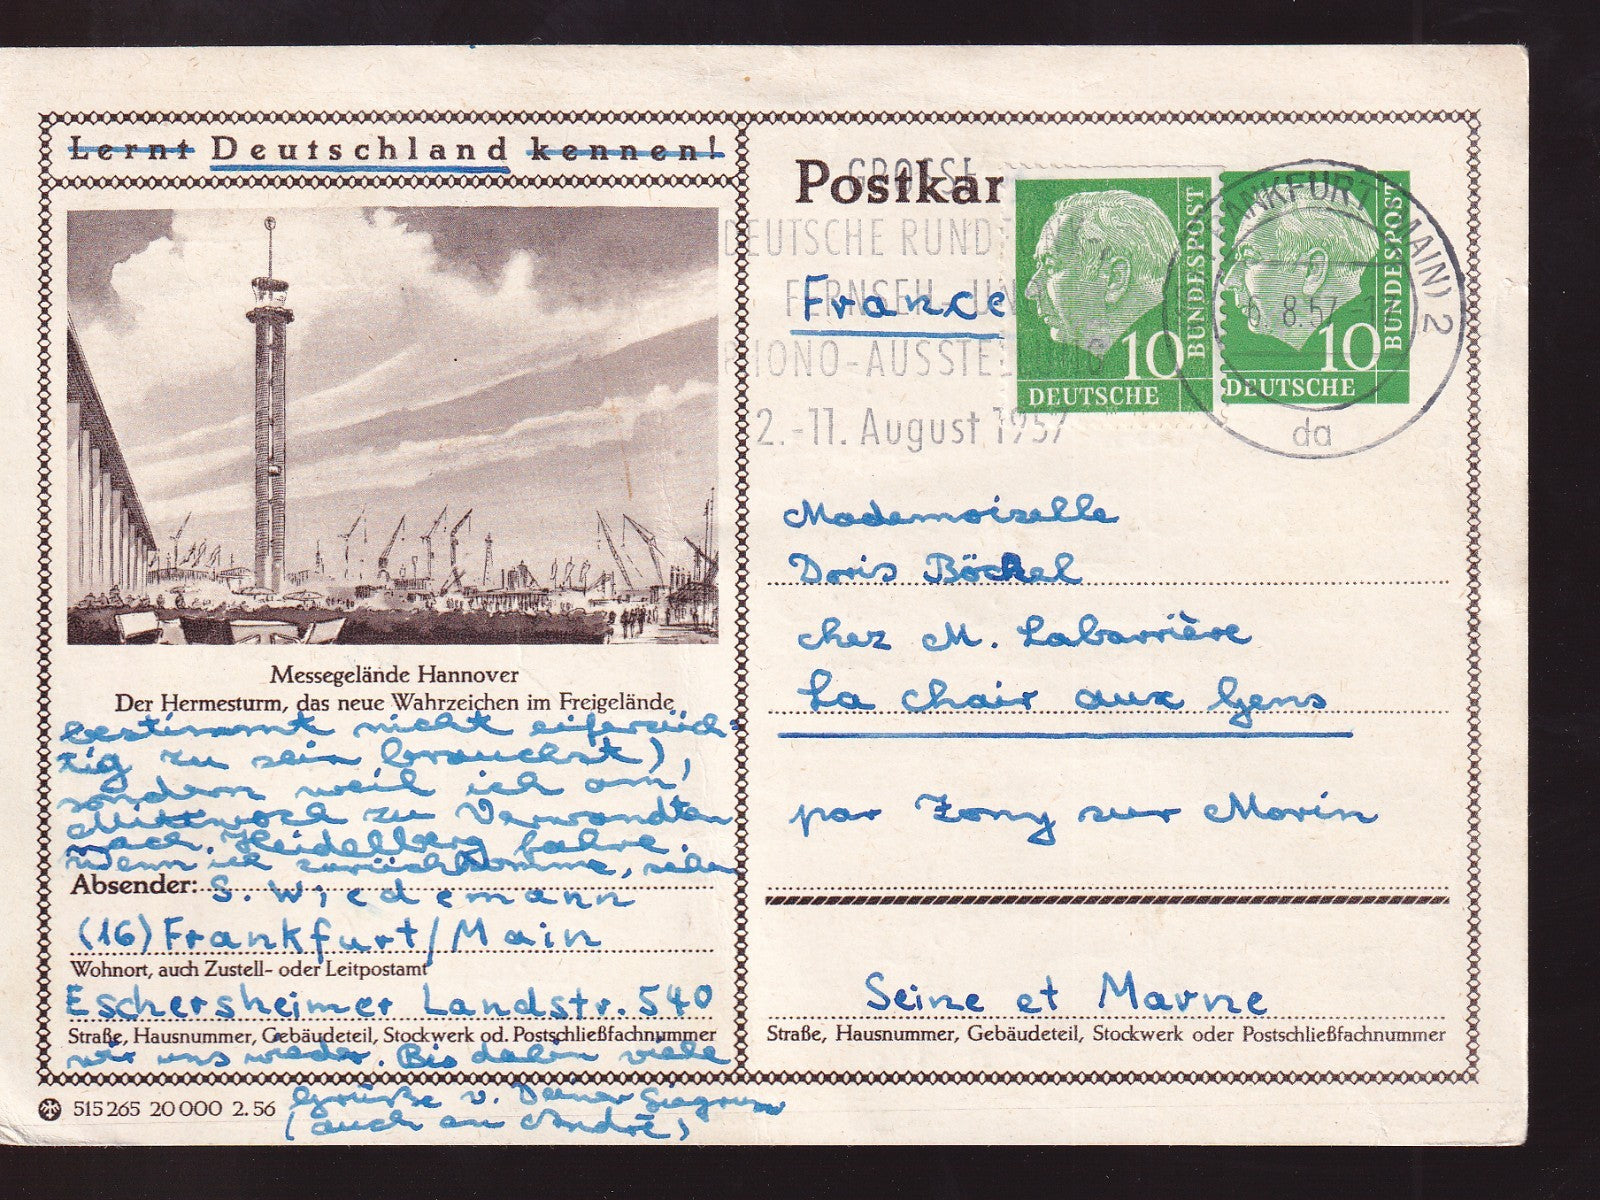 Lernt Deutschland kennen!
Messegelände Hannover
Der Hermesturm, das neue Wahrzeichen im Freigelände
bestimmt nicht eifersüch-
tig zu sein brauchst),
sondern weil ich am
Mittwoch zu Verwandten
nach Heidelberg fahre.
Wenn ich zurückkomme, sehen
Absender: S. Wiedemann
(16) Frankfurt/Main
Wohnort, auch Zustell- oder Leitpostamt
Eschersheimer Landstr. 540
Straße, Hausnummer, Gebäudeteil, Stockwerk od. Postschließfachnummer
wir uns wieder. Bis dahin viele
Grüße v. Deiner
(auch an André)
515 265 20 000 2.56
Postkar
GROSSE
DEUTSCHE RUNDFUNK-,
FERNSEH- UND
PHONO-AUSSTELLUNG
2.-11. August 1957
France
10
DEUTSCHE
BUNDESPOST
10
DEUTSCHE
BUNDESPOST
FRANKFURT (MAIN) 2
6.8.57
da
Mademoiselle
Doris Böckel
chez M. Labarrière
La chair aux Gens
par Zony sur Morin
Seine et Marne
Straße, Hausnummer, Gebäudeteil, Stockwerk oder Postschließfachnummer